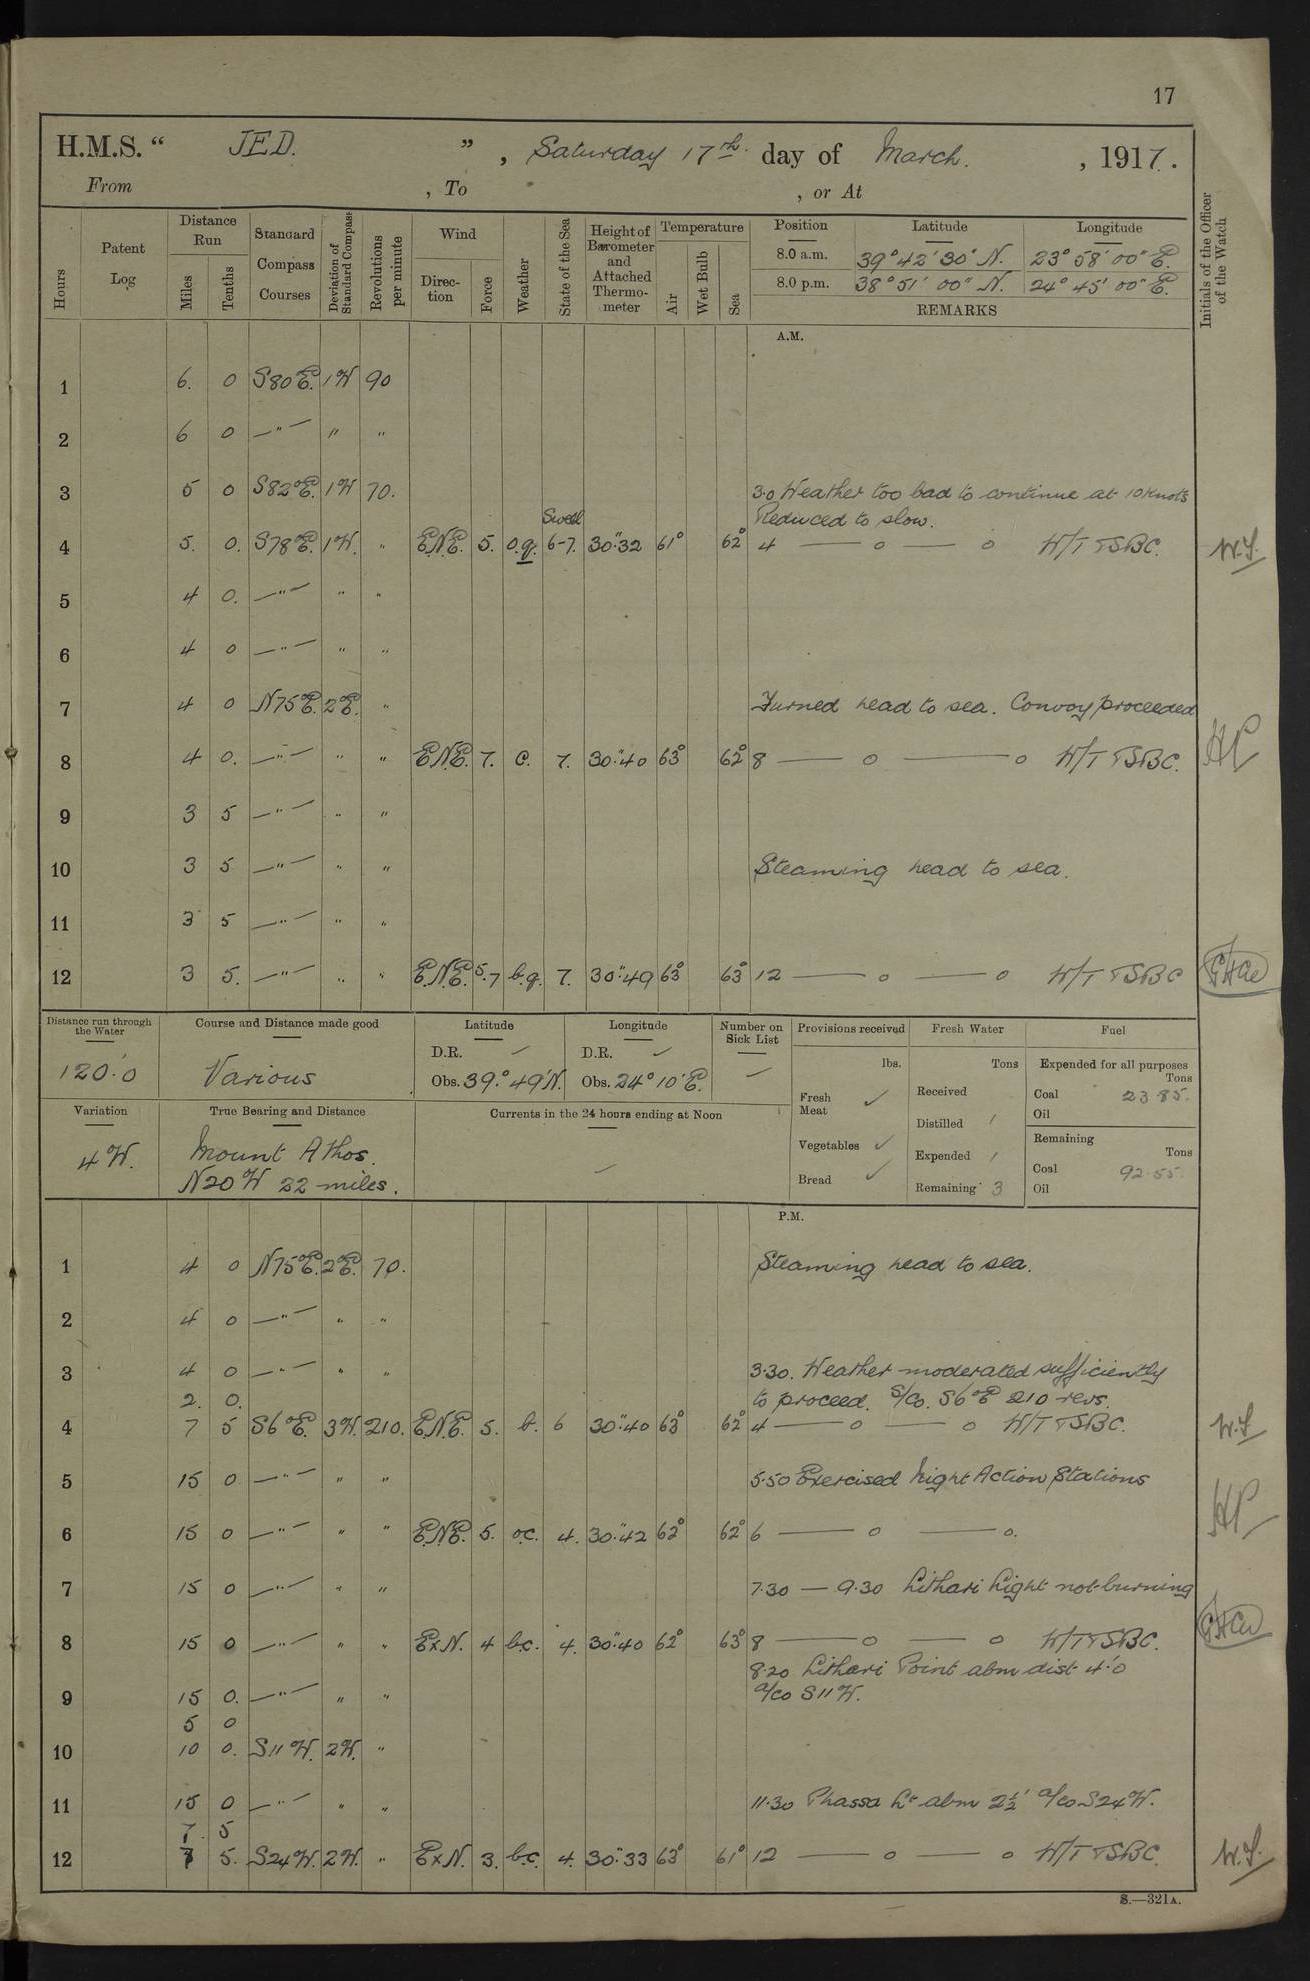 17
H.M.S. “ JED. ” , Saturday 17th day of March. , 1917.
From , To , or At
Hours
Patent Log
Distance Run
Miles
Tenths
Standard Compass Courses
Deviation of Standard Compass
Revolutions per minute
Wind
Direction
Force
Weather
State of the Sea
Height of Barometer and Attached Thermometer
Temperature
Air
Wet Bulb
Sea
Position Latitude Longitude
8.0 a.m. 39° 42' 30" N. 23° 58' 00" E.
8.0 p.m. 38° 51' 00" N. 24° 45' 00" E.
REMARKS
Initials of the Officer of the Watch
A.M.
1 6. 0 S80°E. 1W 90
2 6 0 —"— " "
3 5 0 S82°E. 1W 70. 3.0 Weather too bad to continue at 10 knots
Reduced to slow.
Swell
4 5. 0. S78°E. 1W. " E.N.E. 5. o.q. 6-7. 30".32 61° 62° 4 — o — o W/T TSBC. W.S.
5 4 0. —"— " "
6 4 0 —"— " "
7 4 0 N75°E. 2°E. " Turned head to sea. Convoy proceeded
8 4 0. —"— " " E.N.E. 7. c. 7. 30".40 63° 62° 8 — o — o W/T TSBC. HP
9 3 5 —"— " "
10 3 5 —"— " " Steaming head to sea.
11 3 5 —"— " "
12 3 5. —"— " " E.N.E. 5.7 b.q. 7. 30".49 63° 63° 12 — o — o W/T TSBC
Distance run through the Water
120'.0
Course and Distance made good
Various
Latitude
D.R. ✓
Obs. 39.° 49'N.
Longitude
D.R. ✓
Obs. 24° 10'E.
Number on Sick List
Provisions received
lbs.
Fresh Meat ✓
Vegetables ✓
Bread ✓
Fresh Water
Tons
Received
Distilled
Expended
Remaining 3
Fuel
Expended for all purposes
Tons
Coal 23.85.
Oil
Remaining
Tons
Coal 92.55.
Oil
Variation
4W.
True Bearing and Distance
Mount Athos.
N20°W 22 miles.
Currents in the 24 hours ending at Noon
P.M.
1 4 0 N75°E. 2°E. 70. Steaming head to sea.
2 4 0 —"— " "
3 4 0 —"— " " 3.30. Weather moderated sufficiently
2. 0. to proceed. S/Co. S6°E 210 revs.
4 7 5 S6°E. 3W. 210. E.N.E. 5. b. 6 30".40 63° 62° 4 — o — o W/T TSBC. W.S
5 15 0 —"— " " 5.50 Exercised Night Action Stations
6 15 0 —"— " " E.N.E. 5. o.c. 4. 30".42 62° 62° 6 — o — o. HP
7 15 0 —"— " " 7.30 — 9.30 Lithari Light not burning
8 15 0 —"— " " ExN. 4 b.c. 4. 30".40 62° 63° 8 — o — o W/T TSBC.
8.20 Lithari Point abm dist 4'.0
9 15 0. —"— " " a/co S11W.
5 0
10 10 0. S11W. 2W. "
11 15 0 —"— " " 11.30 Phassa Lt abm 2½' a/co S24W.
7. 5
12 7 5. S24W. 2W. " ExN. 3. b.c. 4. 30".33 63° 61° 12 — o — o W/T TSBC. W.S.
S.—321A.